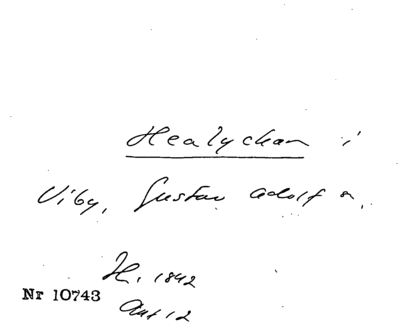 Healychan i
Viby, Gustav Adolf s.
H. 1842
Nr 10743
Ant 12